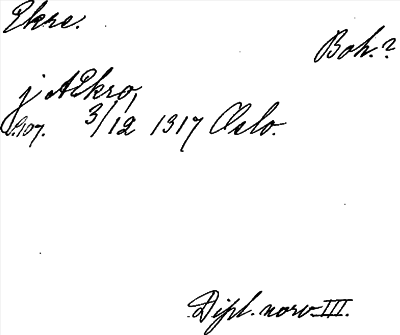 Ekre.
Boh.?
j Ækro,
s. 107. 3/12 1317 Oslo.
Dipl. norv. III.